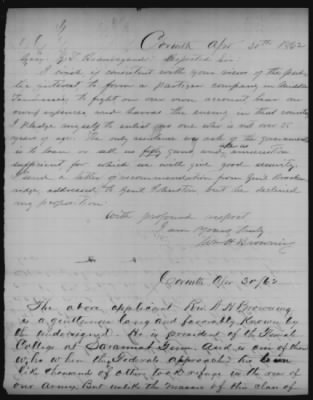 Corinth Apr 30th 1862
Genl G. T. Beauregard. Respected Sir
I wish if consistent with your views of the pub-
lic interest to form a Partizan company in Middle
Tennessee, to fight on our own account bear our
own expenses and harass the enemy in that country
I pledge myself to enlist no one who is not over 35
years of age. The only favor we ask of the government
is to loan us with fifty guns, and ammunition
sufficient for which we will give good security.
I send a letter of recommendation from Genl Brecken
ridge, addressed to Genl Johnston but he declined
my proposition
With profound respect
I am Yours truly
Wm H Browning
Corinth Apr 30/62
The above applicant Rev. W H Browning
is a gentleman long and favorably known by
the undersigned. He is president of the Female
College at Savannah Tenn. and is one of those
who when the Federals approached his
like thousands of others took refuge in the rear of
our Army. But unlike the masses of this class of